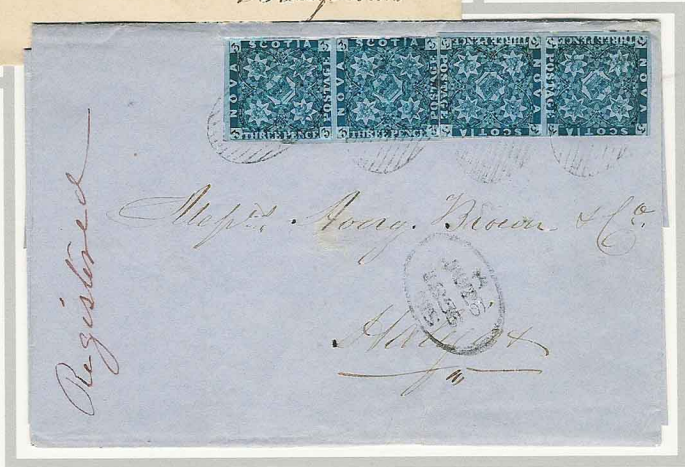 NOVA SCOTIA POSTAGE THREE PENCE
NOVA SCOTIA POSTAGE THREE PENCE
NOVA SCOTIA POSTAGE THREE PENCE
NOVA SCOTIA POSTAGE THREE PENCE
Registered
Messrs. Avery. Brown & Co.
Halifax